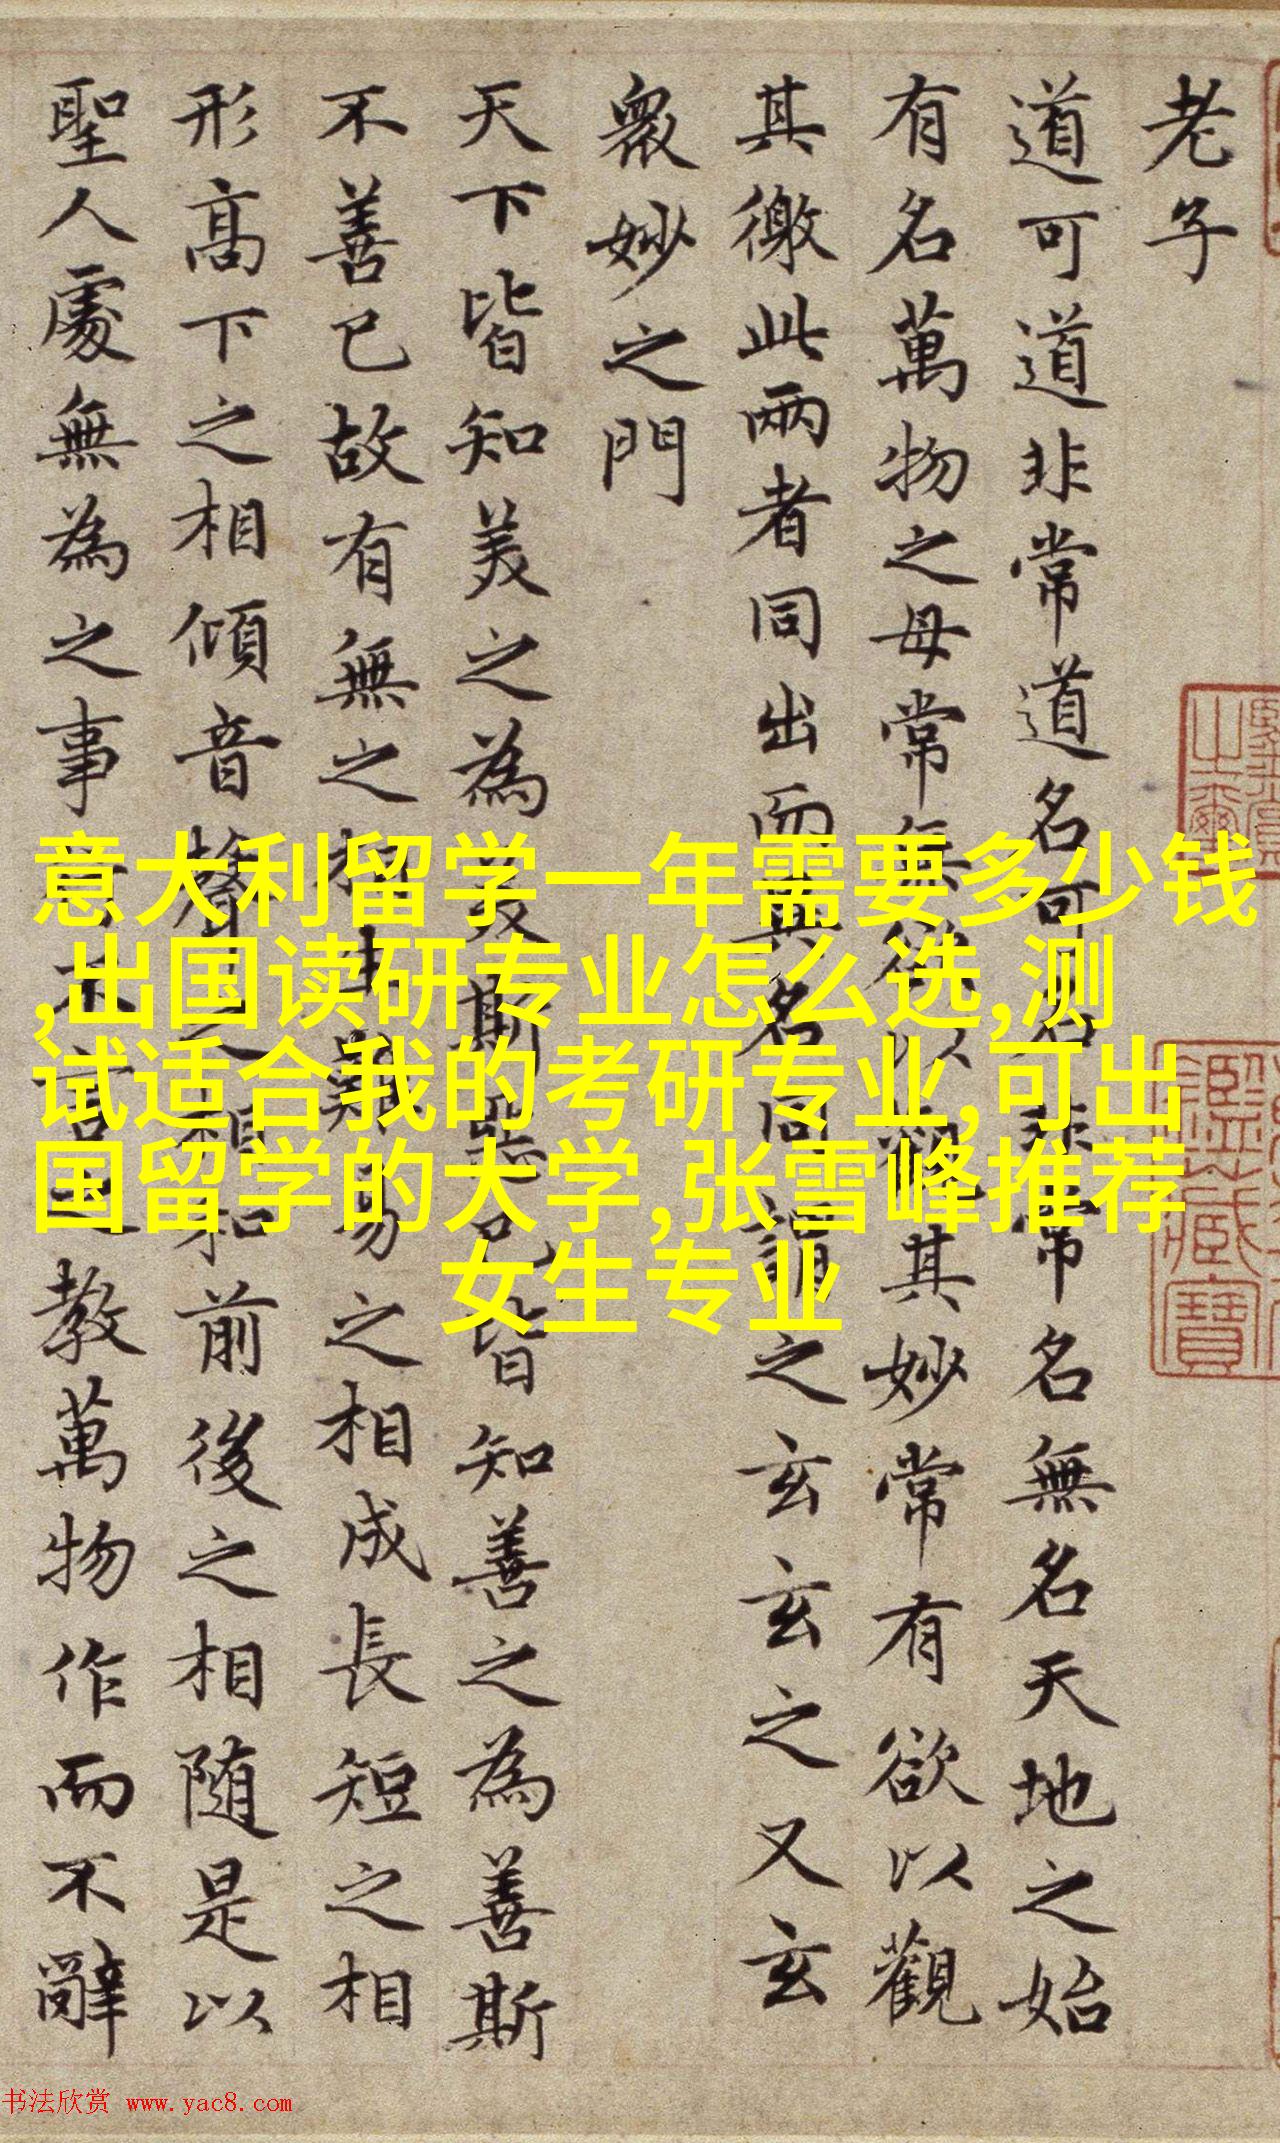 老子
道可道非常道名可名非常名無名天地之始
有名萬物之母常無欲以觀其妙常有欲以觀
其徼此兩者同出而異名同謂之玄玄之又玄
衆妙之門
天下皆知美之為美斯惡已皆知善之為善斯
不善已故有無之相生難易之相成長短之相
形高下之相傾音聲之相和前後之相随是以
聖人處無為之事行不言之教萬物作而不辭
意大利留学一年需要多少钱
,出国读研专业怎么选,测
试适合我的考研专业,可出
国留学的大学,张雪峰推荐
女生专业
书法欣赏 www.yac8.com